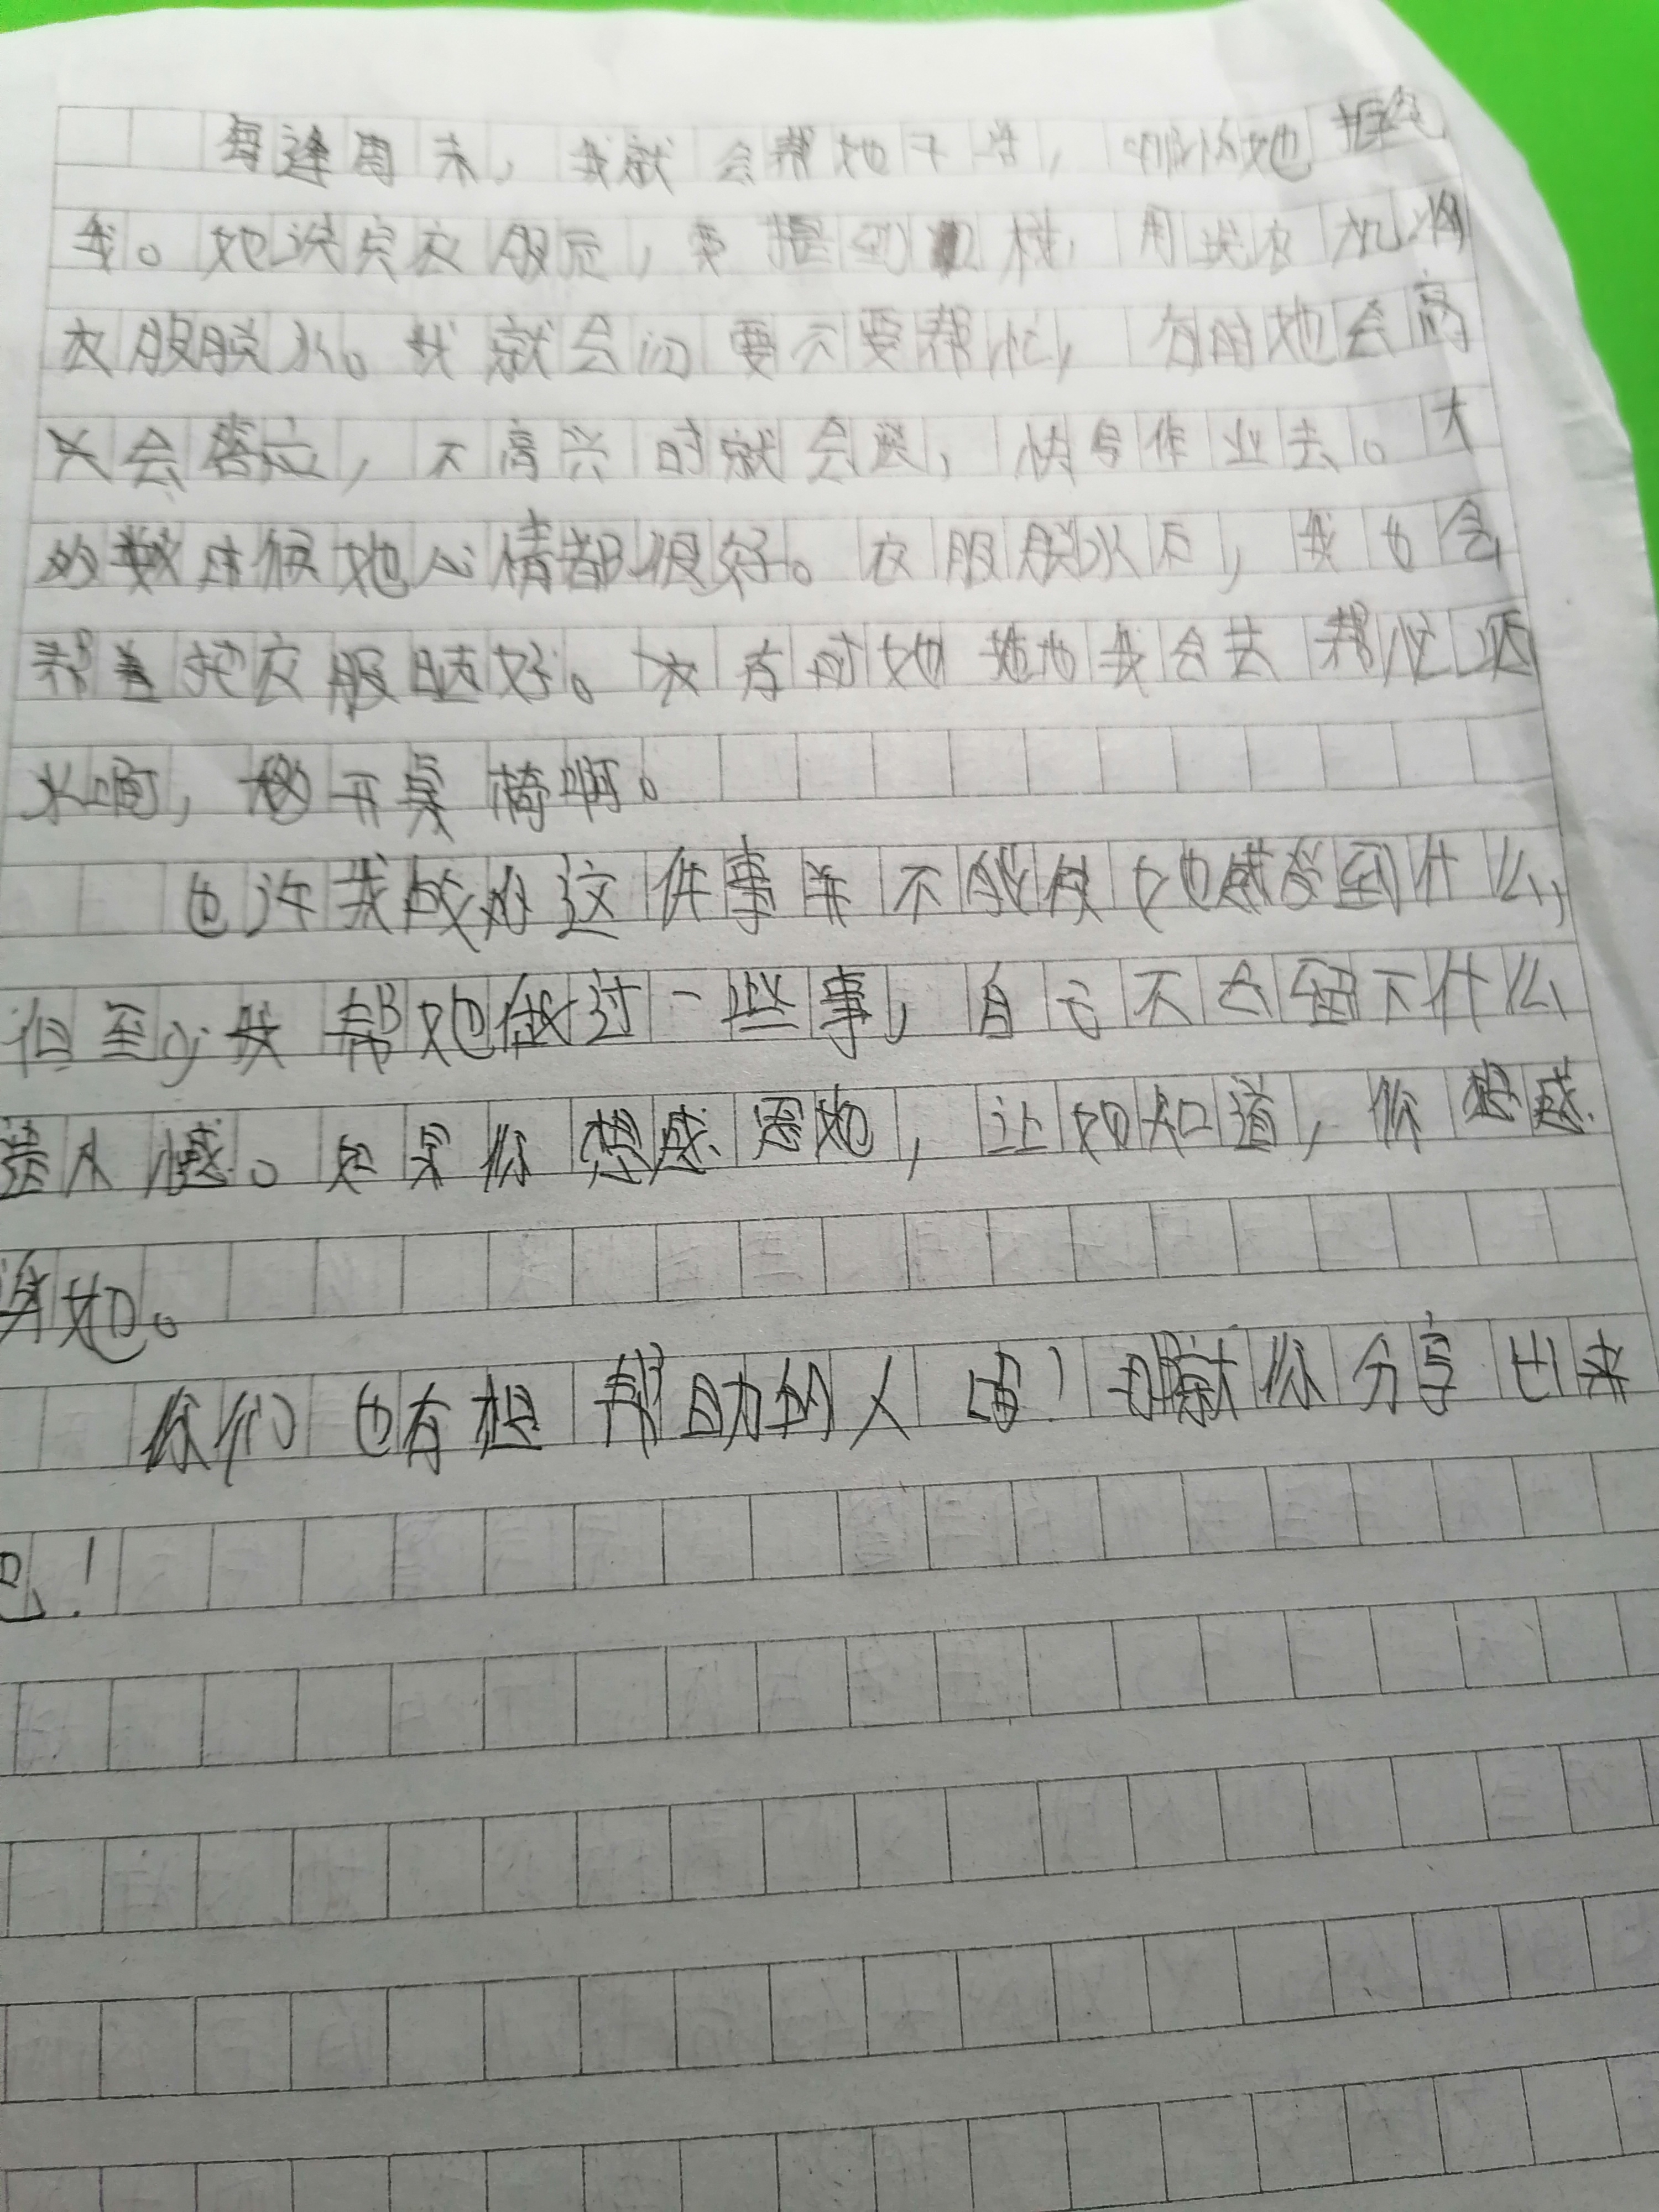 每逢周末，我就会帮她干些，她拒绝
我。她洗完衣服后，要提到楼，用洗衣机将
衣服脱水。我就会问要不要帮忙，有时她会高
兴会答应，不高兴时就会说，快写作业去。大
的数时候她心情都很好。衣服脱水后，我也会
帮着把衣服晒好。次有时她拖地我会去帮忙
水啊，移开桌椅啊。
也许我做的这件事并不能使她感受到什么，
但至少我帮她做过一些事，自己不会留下什么
遗憾。如果你想感恩她，让她知道，你想感
谢她。
你们也有想帮助的人吧！那就你分享出来
吧！